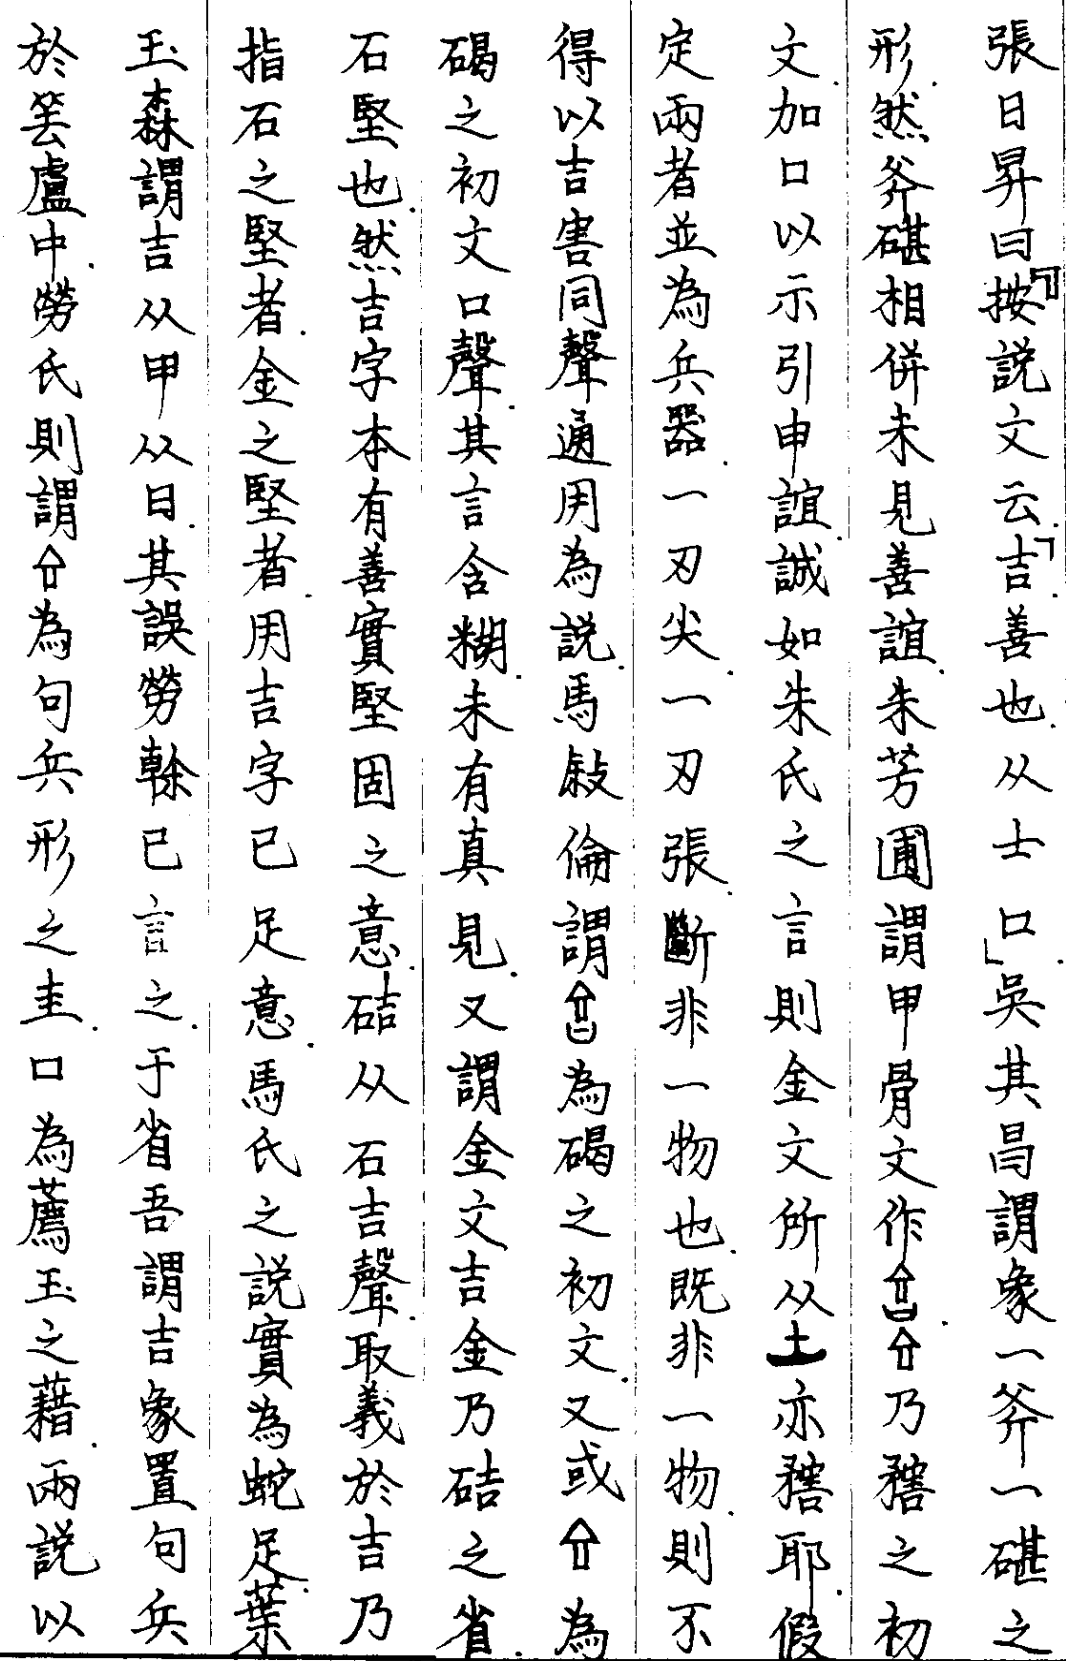 張日昇曰按「說文云「吉善也从士口」吳其昌謂象一斧一碪之
形然斧碪相併未見善誼朱芳圃謂甲骨文作乃𥎊之初
文加口以示引申誼誠如朱氏之言則金文所从土亦𥎊耶假
定兩者並為兵器一刃尖一刃張斷非一物也既非一物則不
得以吉害同聲通用為說馬敍倫謂為碣之初文又或為
碣之初文口聲其言含糊未有真見又謂金文吉金乃硈之省
石堅也然吉字本有善實堅固之意硈从石吉聲取義於吉乃
指石之堅者金之堅者用吉字已足意馬氏之說實為蛇足葉
玉森謂吉从甲从日其誤勞榦已言之于省吾謂吉象置句兵
於筶盧中勞氏則謂為句兵形之圭口為薦玉之藉兩說以